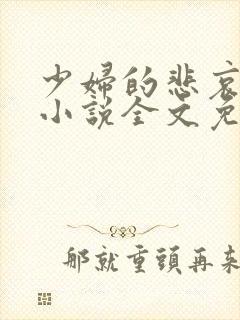 少婦的悲哀
小說全文免
那就重頭再來